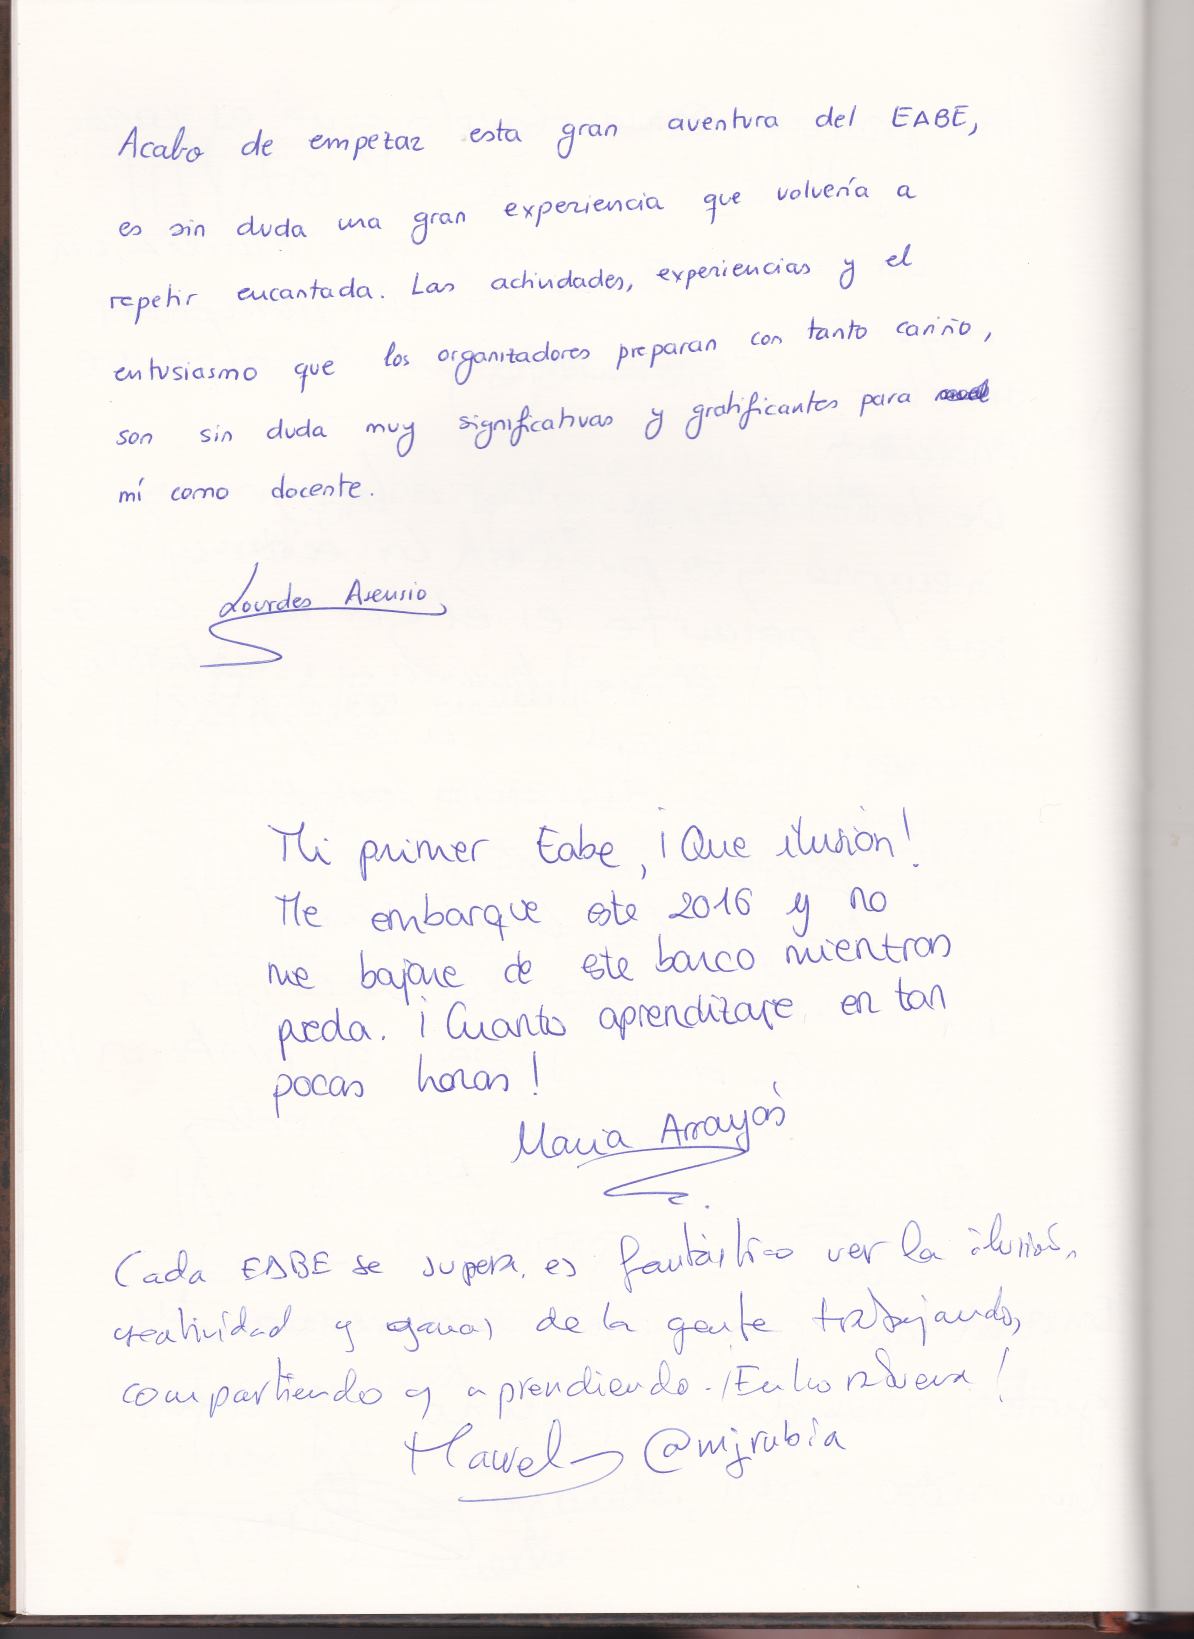 Acabo de empezar esta gran aventura del EABE,
es sin duda una gran experiencia que volvería a
repetir encantada. Las actividades, experiencias y el
entusiasmo que los organizadores preparan con tanto cariño,
son sin duda muy significativas y gratificantes para
mí como docente.
Lourdes Asensio
Mi primer Eabe, ¡Que ilusión!
Me embarque este 2016 y no
me bajare de este barco mientras
pueda. ¡Cuanto aprendizaje en tan
pocas horas!
Maria Arrayás
Cada EABE se supera, es fantástico ver la ilusión,
creatividad y ganas de la gente trabajando,
compartiendo y aprendiendo. ¡Enhorabuena!
Manuel @mjrubia